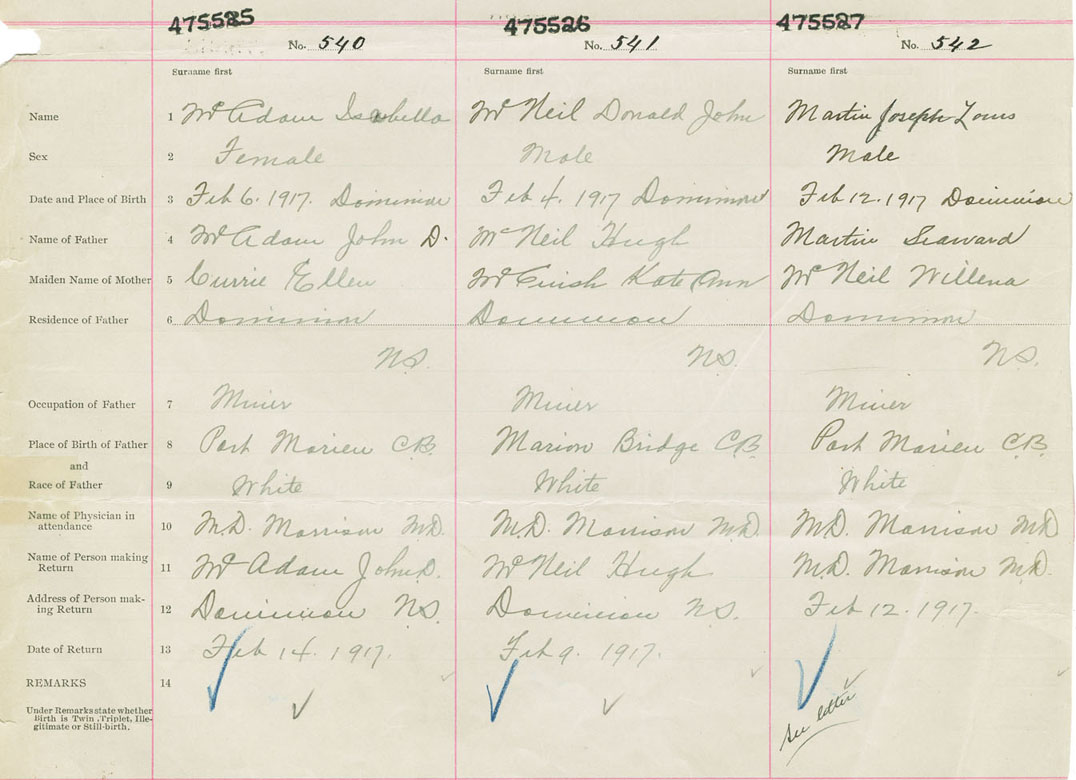 475525 475526 475527
No. 540 No. 541 No. 542
Surname first Surname first Surname first
Name 1 Mc Adam Isabella Mc Neil Donald John Martin Joseph Louis
Sex 2 Female Male Male
Date and Place of Birth 3 Feb 6. 1917. Dominion Feb 4. 1917 Dominion Feb 12. 1917 Dominion
Name of Father 4 Mc Adam John D. Mc Neil Hugh Martin Seaward
Maiden Name of Mother 5 Currie Ellen Kate Ann Mc Neil Willena
Residence of Father 6 Dominion Dominion Dominion
N.S. N.S. N.S.
Occupation of Father 7 Miner Miner Miner
Place of Birth of Father 8 Port Morien C.B. Marion Bridge C.B. Port Morien C.B.
and
Race of Father 9 White White White
Name of Physician in
attendance 10 M.D. Morrison M.D. M.D. Morrison M.D. M.D. Morrison M.D.
Name of Person making
Return 11 Mc Adam John D. Mc Neil Hugh M.D. Morrison M.D.
Address of Person mak-
ing Return 12 Dominion N.S. Dominion N.S. Feb 12. 1917.
Date of Return 13 Feb 14. 1917. Feb 9. 1917.
REMARKS 14
Under Remarks state whether
Birth is Twin, Triplet, Ille-
gitimate or Still-birth.
See letter